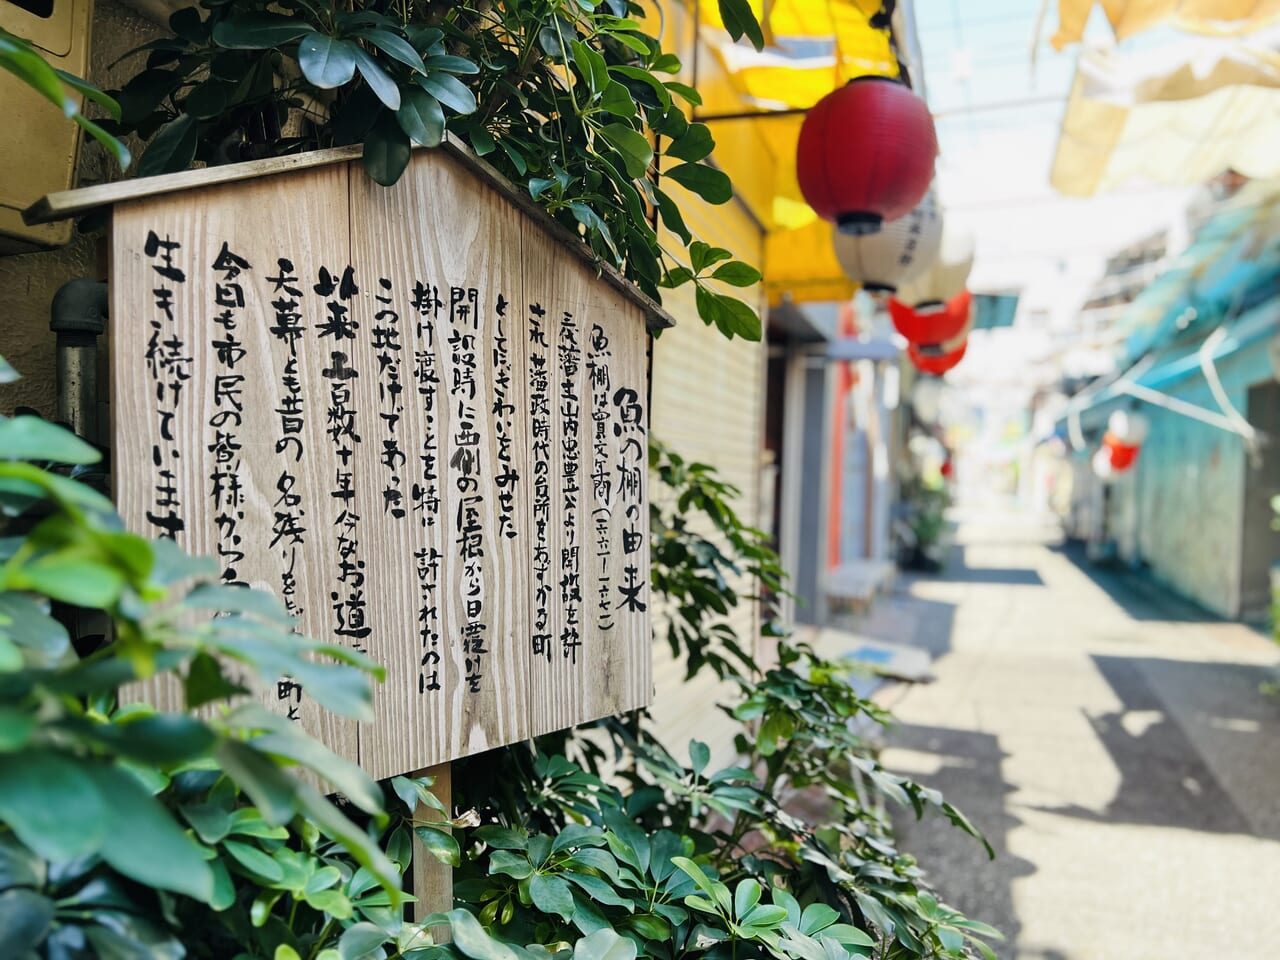 魚の棚の由来
魚棚は寛文年間(一六六一ー一六七二)
三代藩主山内忠豊公より開設を許
され 藩政時代の台所をあずかる町
としてにぎわいをみせた
開設時に西側の屋根から日覆けを
掛け渡すことを特に 許されたのは
この地だけであった
以来三百数十年 今なお道
天幕とも昔の 名残りをと 町と
今日も市民の皆様から
生き続けています